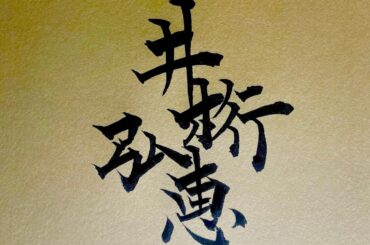 井桁
弘恵